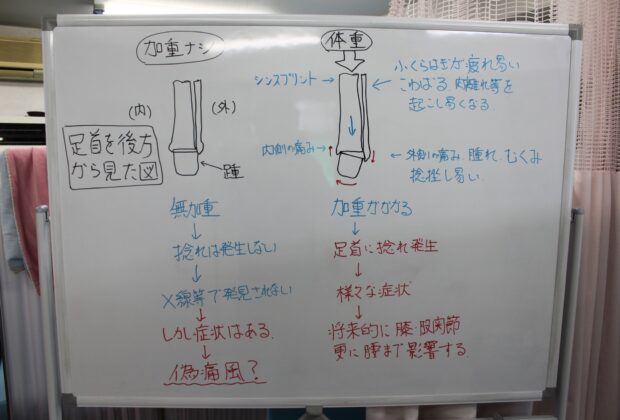 加重ナシ
(内)
(外)
足首を後方
から見た図
踵
無加重
↓
捻れは発生しない
↓
X線等で発見されない
↓
しかし症状はある.
↓
偽痛風?
体重
シンスプリント→
← ふくらはぎが疲れ易い
こわばる. 肉離れ等を
起こし易くなる.
内側の痛み→
← 外側の痛み. 腫れ. むくみ
捻挫し易い.
加重がかかる
↓
足首に捻れ発生
↓
様々な症状
↓
将来的に膝・股関節
更に腰まで影響する.